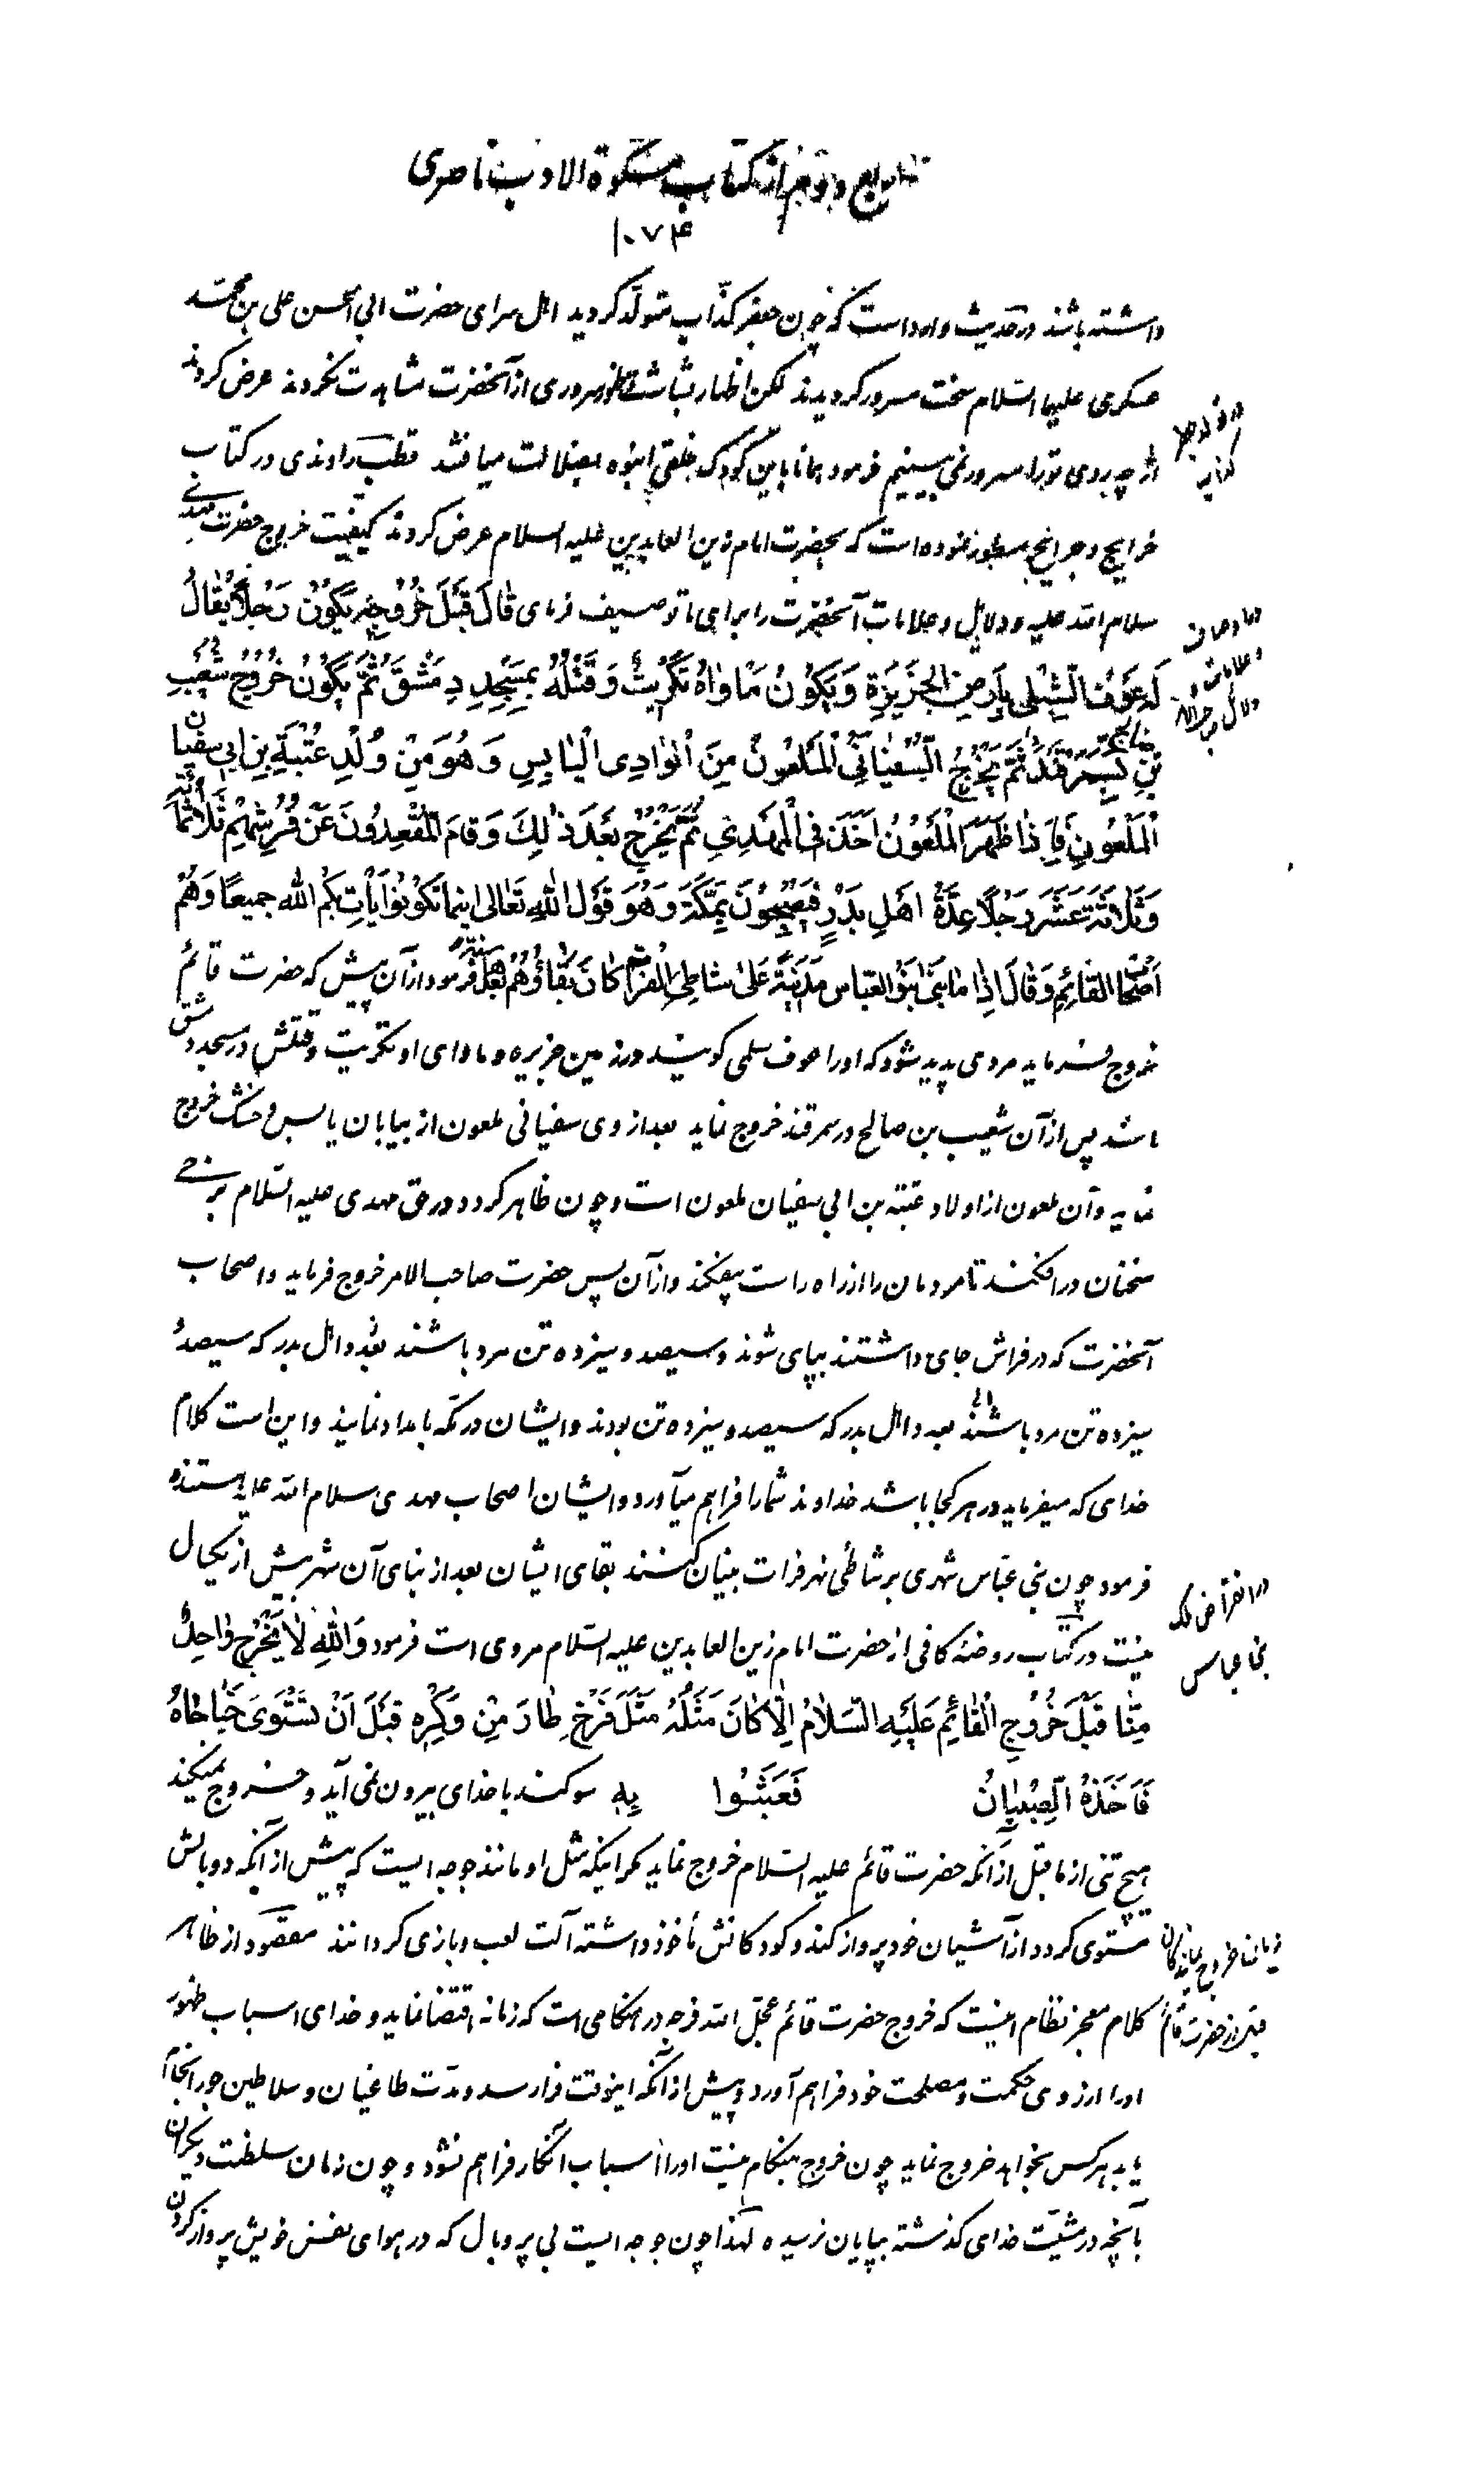 ربع دوم از کتاب مشکوة الادب ناصری
۱۰۷۴
داشته باشند در حدیث وارد است که چون جعفر کذّاب متولّد گردید اهل سرای حضرت ابی الحسن علی بن محمّد
عسکری علیهما السّلام سخت مسرور گردیدند لکن اظهار بشاشت و ظهور سروری از آنحضرت مشاهدت نکردند عرض کردند
از چه روی تو را مسرور نمی بینیم فرمود همانا باین کودک خلقی انبوه بضلالت میافتند قطب راوندی در کتاب
در تولد جعفر کذاب
خرایج و جرایح مسطور نموده است که بحضرت امام زین العابدین علیه السلام عرض کردند کیفیت خروج حضرت مهدی
سلام الله علیه و دلایل و علامات آنحضرت را برای ما توصیف فرمای قَالَ قَبْلَ خُرُوجِهِ یَکُونُ رَجُلاً یُقَالُ
لَهُ عَوْفُ السَّلَمی بِاَرْضِ الْجَزیرَةِ وَیَکُونُ مَاْوٰاهُ تَکْریتُ وَقَتْلُهُ بِمَسْجِدِ دِمَشْقَ ثُمَّ یَکُونُ خُرُوجُ شُعَیْبِ
و علامات و دلایل
بْنِ صالِح بِسَمَرْقَنْدَ ثُمَّ یَخْرُجُ السُّفْیٰانِیُّ الْمَلْعُونُ مِنَ الْوٰادِی الْیٰابِسِ وَهُوَ مِنْ وُلْدِ عُتْبَةِ بْنِ اَبی سُفْیٰان
الْمَلْعُونِ فَاِذٰا ظَهَرَ الْمَلْعُونُ اَخَذَ فِی الْمَهْدِیِّ ثُمَّ یَخْرُجُ بَعْدَ ذٰلِکَ وَقامَ الْمُقْعِدُونَ عَنْ فُرُشِهِمْ ثَلٰاثُمِائَة
وَثَلٰاثَةَ عَشَرَ رَجُلاً عِدَّةُ اَهْلِ بَدْرٍ فَیُصْبِحُونَ بِمَکَّةَ وَهُوَ قَوْلُ اللّٰهِ تَعٰالی اینما تکونوا یَأْتِ بکم الله جمیعًا وَهُمْ
اَصْحٰابُ القٰائِمِ وَقٰالَ اِذٰا مٰا بَنٰی بَنُو العَبّاسِ مَدینَةً عَلیٰ شاطِئِ الْفُرٰاتِ کانَ بَقٰاؤُهُمْ بَعْدَهٰا سَنَةً فرمود از آن پیش که حضرت قائم
خروج فرماید مردی پدید شود که او را عوف سلمی گویند در زمین جزیره و ماوای او تکریت و قتلش در مسجد دمشق
باشد پس از آن شعیب بن صالح در سمرقند خروج نماید بعد از وی سفیانی ملعون از بیابان یابس و خشک خروج
نماید و آن ملعون از اولاد عتبة بن ابی سفیان ملعون است و چون ظاهر گردد در حق مهدی علیه السّلام برخی
سخنان در افکند تا مردمان را از راه راست بیفکند و از آن پس حضرت صاحب الامر خروج فرماید و اصحاب
آنحضرت که در فراش جای داشتند بپای شوند و سیصد و سیزده تن مرد باشند بعدد اهل بدر که سیصد و
سیزده تن مرد باشند بعدد اهل بدر که سیصد و سیزده تن بودند و ایشان در مکّه بامداد نمایند و این است کلام
خدای که میفرماید در هر کجا باشد خداوند شما را فراهم میآورد و ایشان اصحاب مهدی سلام الله علیه هستند و
فرمود چون بنی عبّاس شهری بر شاطی نهر فرات بنیان کنند بقای ایشان بعد از بنای آن شهر بیش از یکسال
در انقراض ملک بنی عباس
نیست در کتاب روضهٔ کافی از حضرت امام زین العابدین علیه السّلام مروی است فرمود وَاللّٰهِ لٰا یَخْرُجُ وٰاحِدٌ
مِنّٰا قَبْلَ خُرُوجِ الْقٰائِمِ عَلَیْهِ السَّلٰامُ اِلّٰا کٰانَ مَثَلُهُ مَثَلَ فَرْخٍ طٰارَ مِنْ وَکْرِهِ قَبْلَ اَنْ یَسْتَوِیَ جَنٰاحٰاهُ
فَاَخَذَهُ الصِّبْیٰانُ فَعَبَثُوا بِهِ سوگند با خدای بیرون نمی آید و خروج نمیکند
هیچ تنی از ما قبل از آنکه حضرت قائم علیه السّلام خروج نماید مگر اینکه مثل او مانند جوجه ایست که پیش از آنکه دو بالش
مستوی گردد از آشیان خود پرواز کند و کودکانش مأخوذ داشته آلت لعب و بازی گردانند مقصود از ظاهر
زمان خروج
کلام معجز نظام اینست که خروج حضرت قائم عجّل الله فرجه در هنگامی است که زمانه اقتضا نماید و خدای اسباب ظهور
قبل از حضرت قائم
او را از روی حکمت و مصلحت خود فراهم آورد و پیش از آنکه اینوقت فرا رسد و مدّت طاغیان و سلاطین جور انجام
یابد هر کس بخواهد خروج نماید چون خروج بهنگام نیست او را اسباب آنکار فراهم نشود و چون زمان سلطنت دیگران
بآنچه در مشیّت خدای گذشته بپایان نرسیده لهذا چون جوجه ایست بی پر و بال که در هوای نفس خویش پرواز کردن